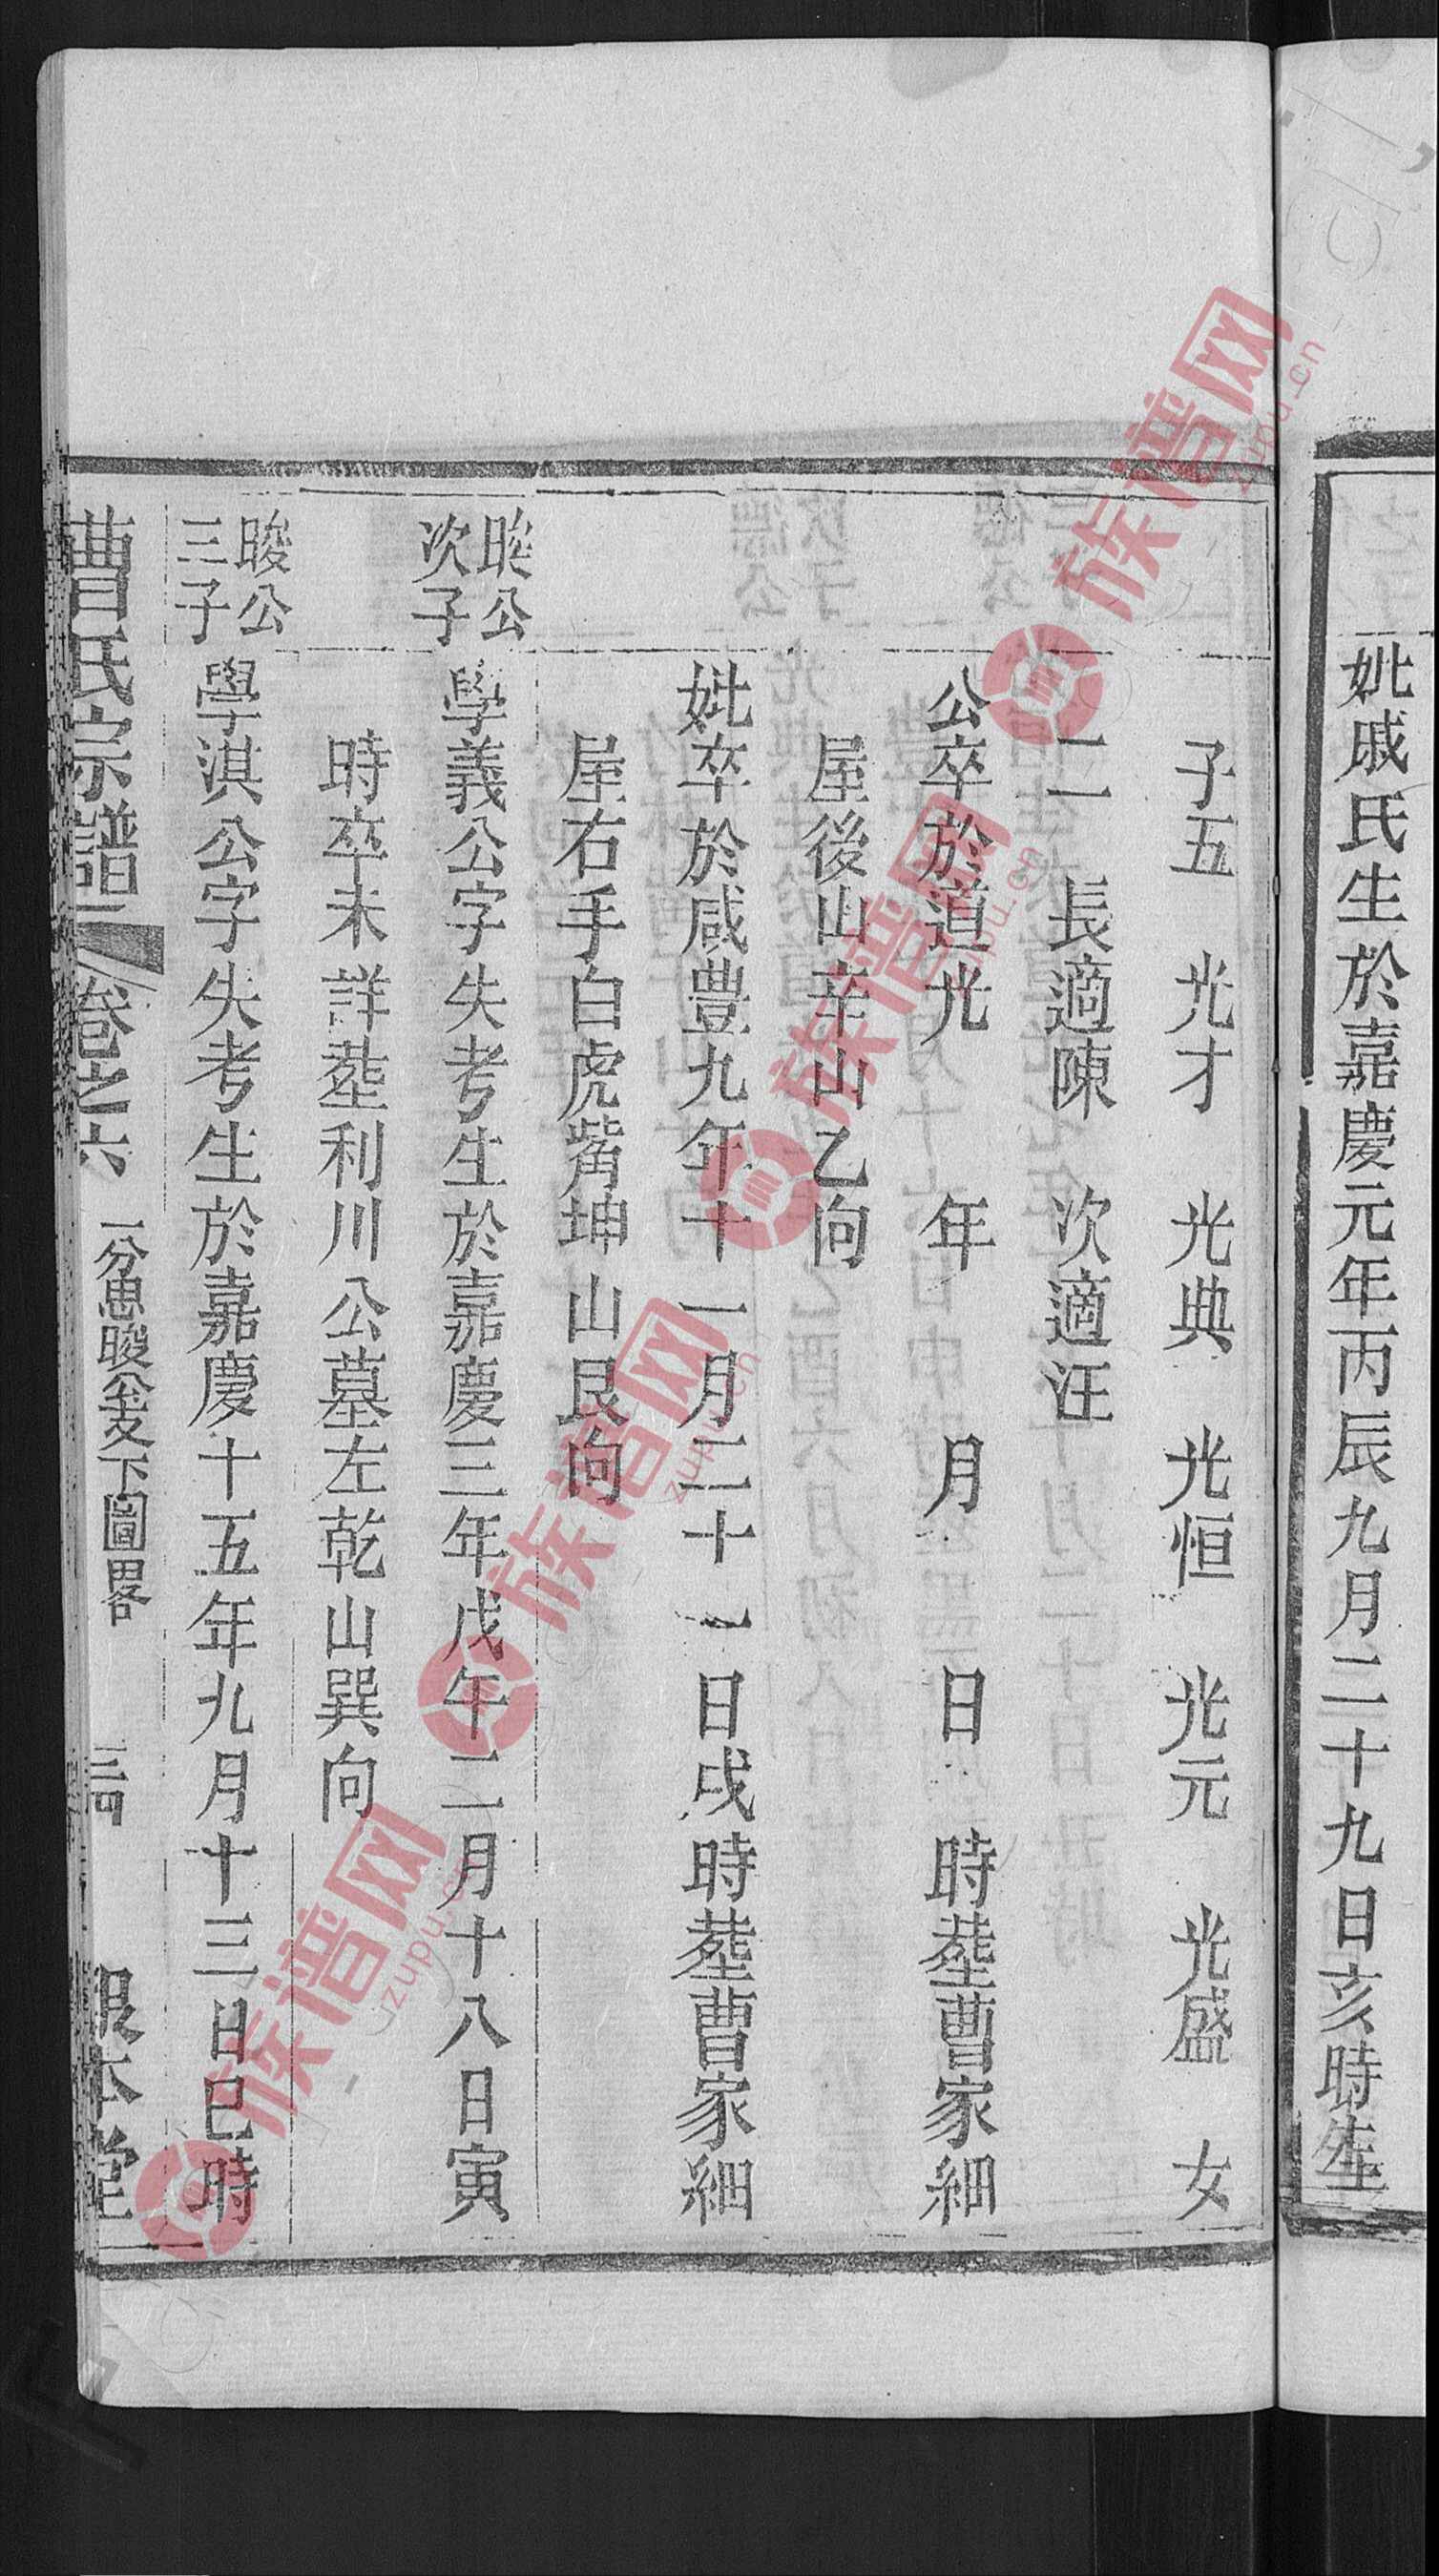 妣戚氏生於嘉慶元年丙辰九月二十九日亥時生
子五 光才 光典 光恒 光元 光盛 女
二 長適陳 次適汪
公卒於道光 年 月 日 時塟曹家細
屋後山辛山乙向
妣卒於咸豊九年十一月二十一日戌時塟曹家細
屋右手白虎觜坤山艮向
晙公
次子
學義公字失考生於嘉慶三年戊午二月十八日寅
時卒未詳塟利川公墓左乾山巽向
晙公
三子
學淇公字失考生於嘉慶十五年九月十三日巳時
曹氏宗譜 卷之六 一分思晙公支下圖畧 報本堂
族谱网 zupu.cn
族谱网 zupu.cn
族谱网 zupu.cn
族谱网 zupu.cn